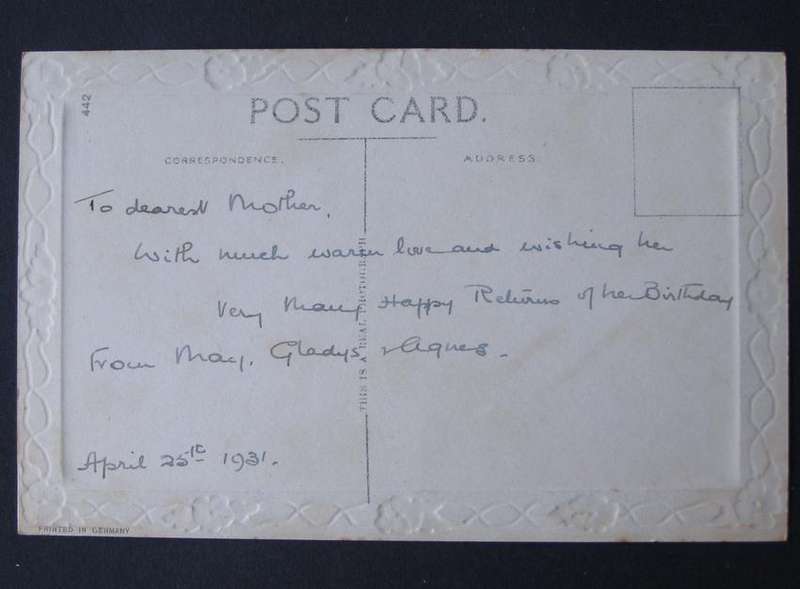 442
POST CARD.
CORRESPONDENCE.
ADDRESS
To dearest Mother,
With much warm love and wishing her
Very Many Happy Returns of her Birthday
From May, Gladys, & Agnes.
April 25th 1931.
THIS IS A REAL PHOTOGRAPH
PRINTED IN GERMANY